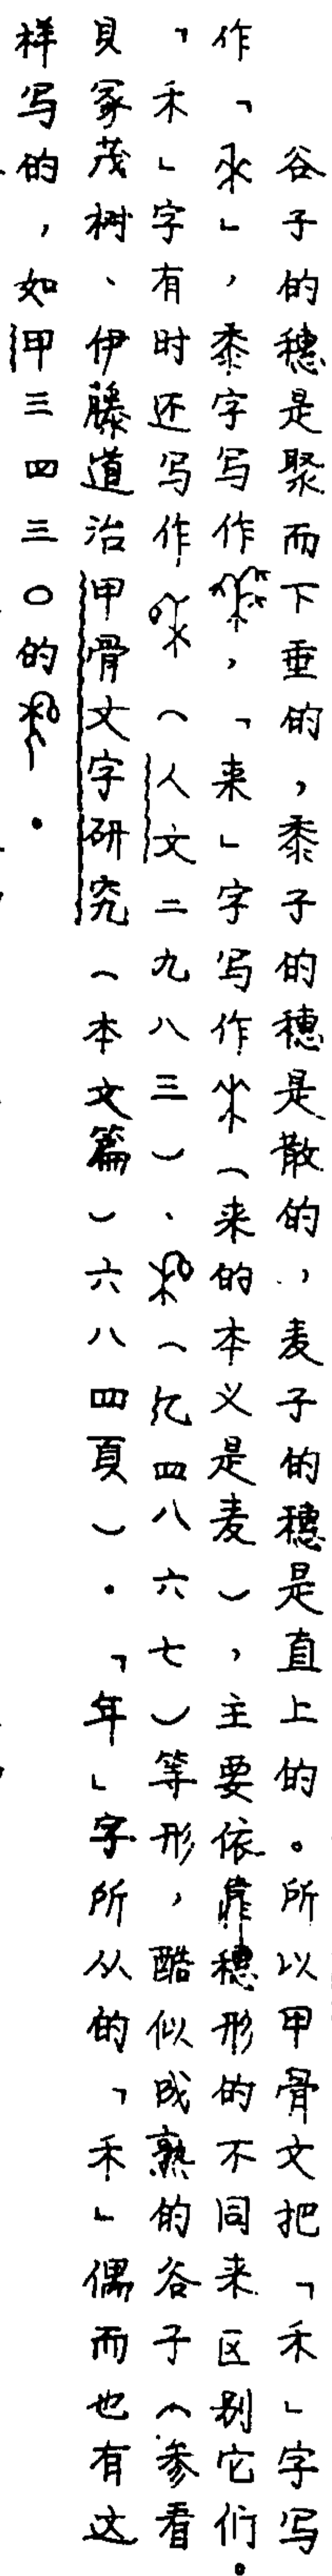 谷子的穗是聚而下垂的，黍子的穗是散的，麦子的穗是直上的。所以甲骨文把「禾」字写
作「」，黍字写作，「来」字写作（来的本义是麦），主要依靠穗形的不同来区别它们。
「禾」字有时还写作（人文二九八三）、（乙四八六七）等形，酷似成熟的谷子（参看
貝冢茂树、伊藤道治甲骨文字研究（本文篇）六八四頁）。「年」字所从的「禾」偶而也有这
样写的，如甲三四三〇的。